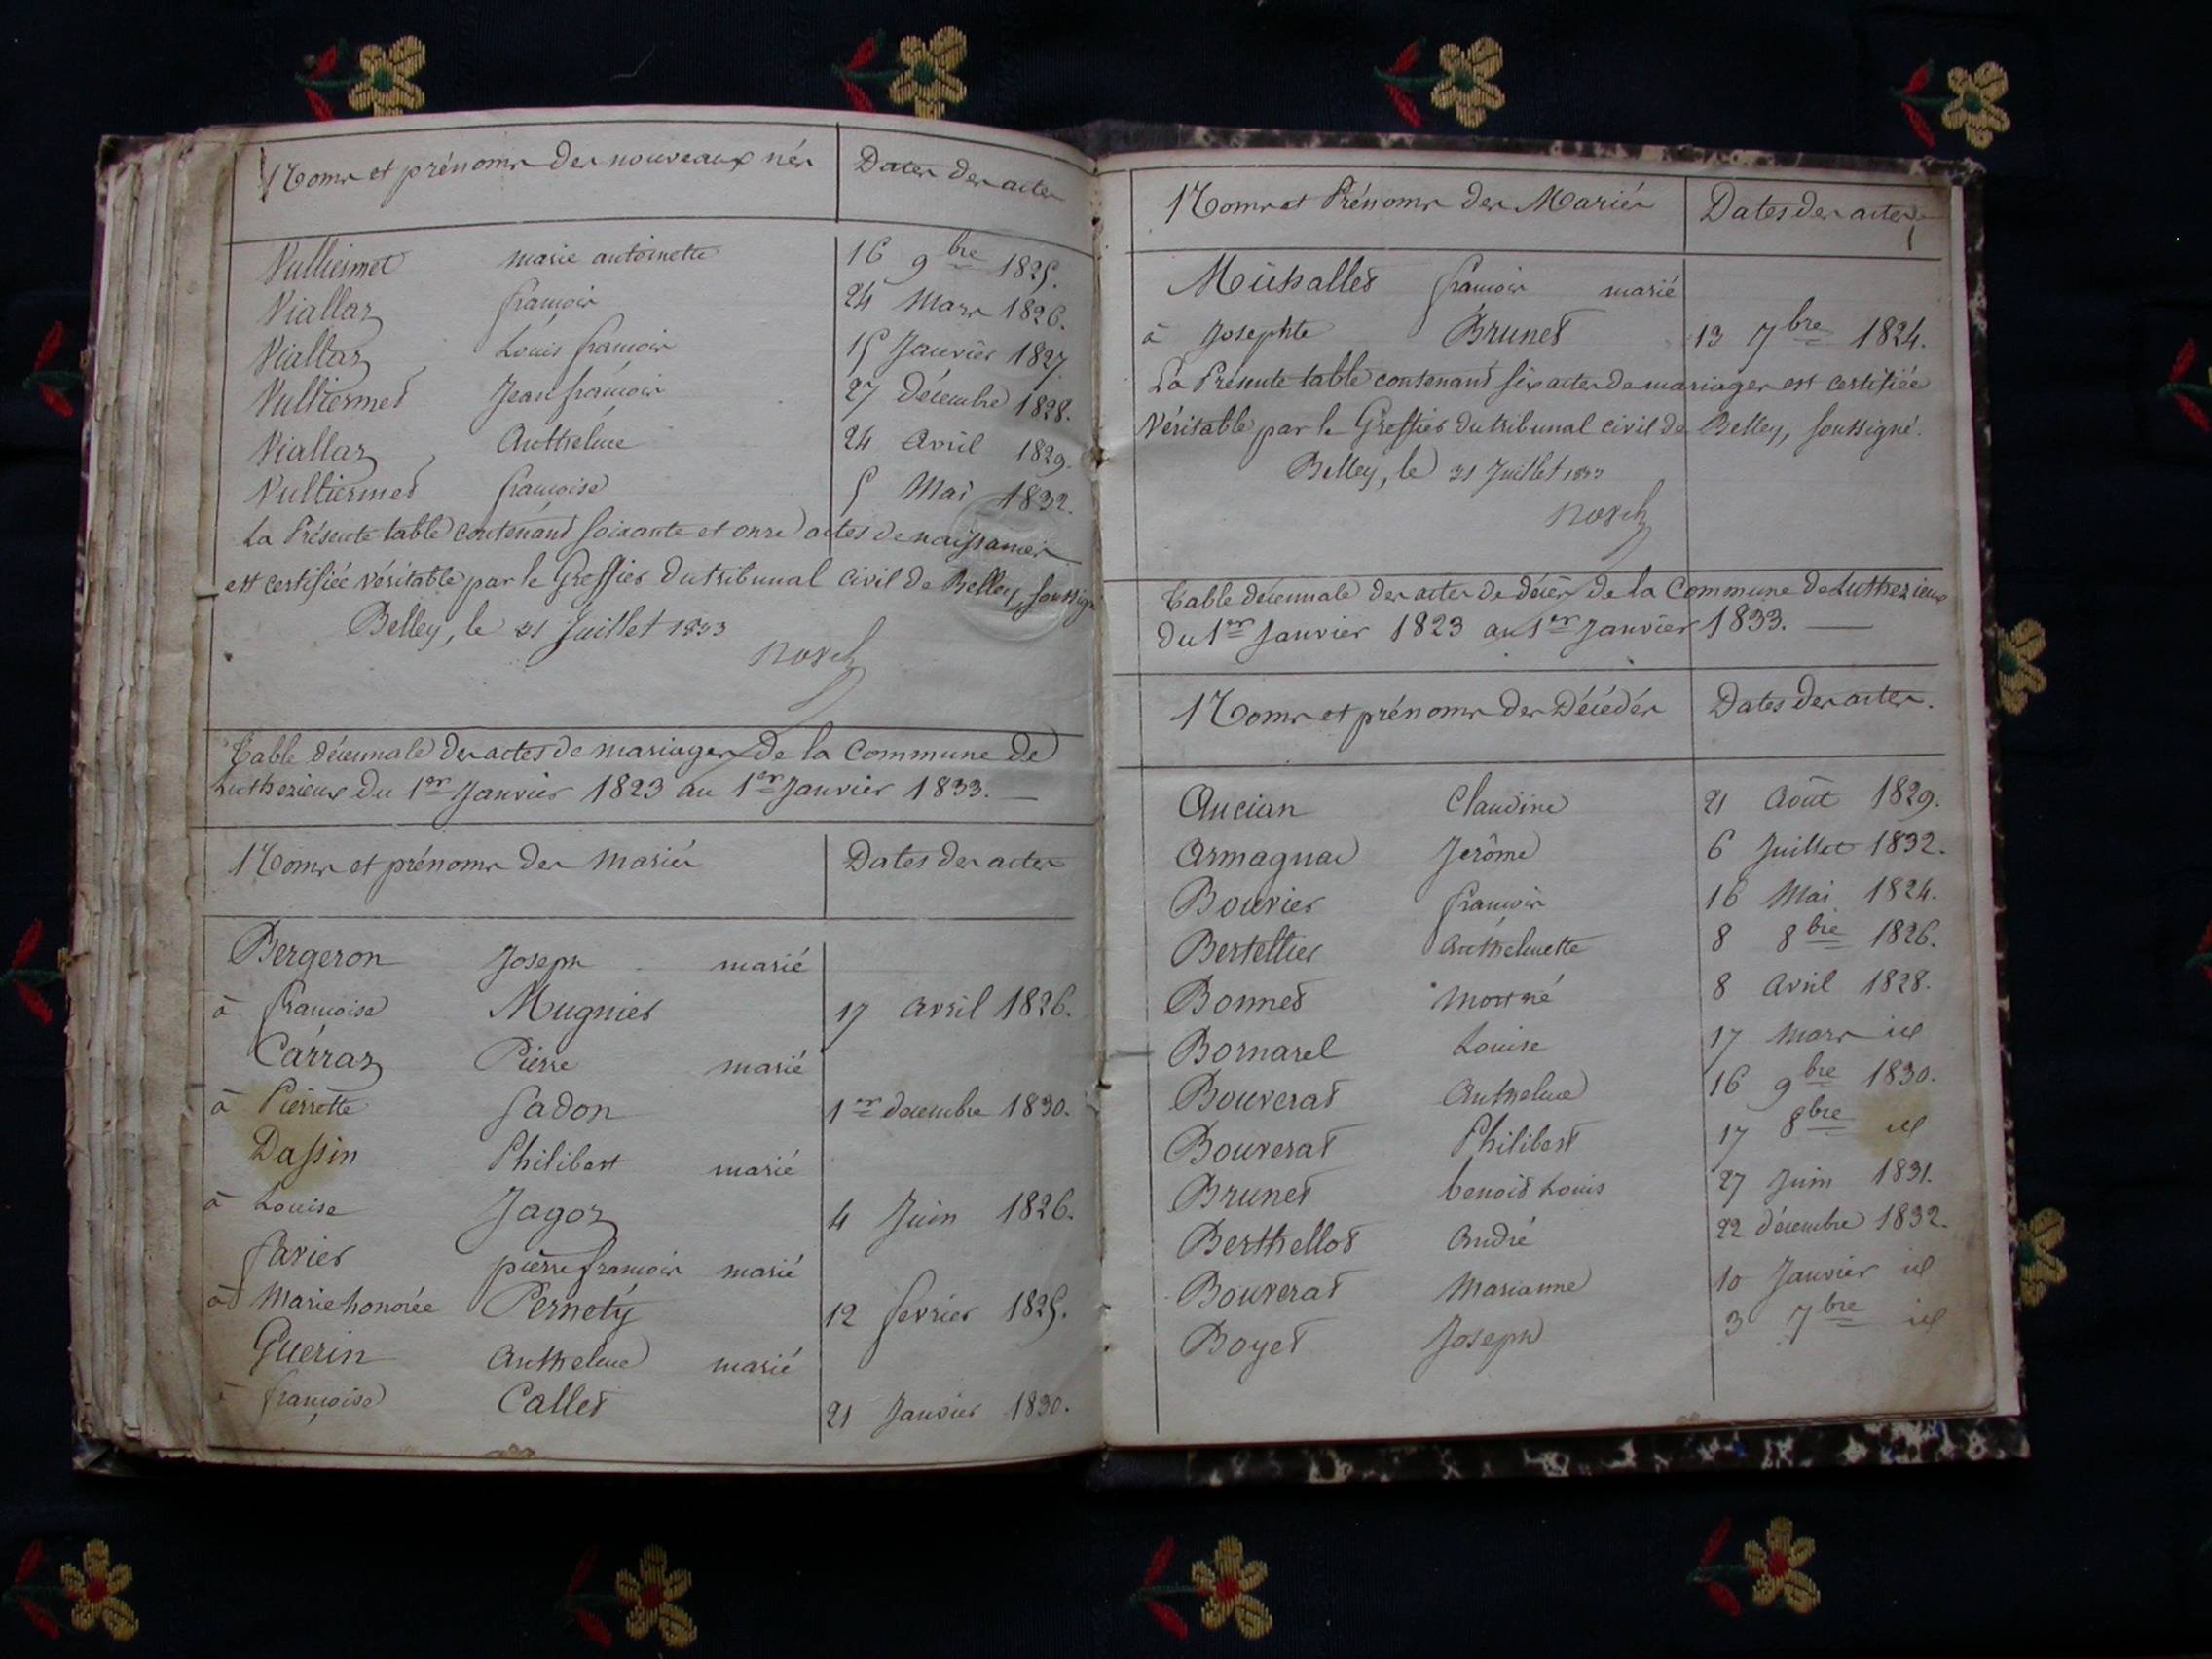 Noms et prénoms des nouveaux nés Dates des actes
Vulliermet marie antoinette 16 9bre 1825.
Viallaz françois 24 Mars 1826.
Viallaz Louis françois 15 Janvier 1827
Vulliermet Jean françois 27 décembre 1828.
Viallaz Anthelme 24 Avril 1829.
Vulliermet françoise 5 Mai 1832.
La Présente table contenant soixante et onze actes de naissances
est certifiée véritable par le Greffier du tribunal civil de Belley, soussigné
Belley, le 31 Juillet 1833
Table décennale des actes de mariages de la Commune de
Luthezieux du 1er Janvier 1823 au 1er Janvier 1833. —
Noms et prénoms des mariés Dates des actes
Bergeron Joseph marié
à françoise Mugnier 17 avril 1826.
Carraz Pierre marié
à Pierrette Jadon 1er décembre 1830.
Dassin Philibert marié
à Louise Jagoz 4 Juin 1826.
favier pierre françois marié
à Marie honorée Pernety 12 fevrier 1825.
Guerin Anthelme marié
à françoise Callet 21 Janvier 1830.
Noms et Prénoms des Mariés Dates des actes
françois marié
à Josephte Brunet 13 7bre 1824.
La Présente table contenant six actes de mariages est certifiée
Véritable par le Greffier du tribunal civil de Belley, soussigné.
Belley, le 31 Juillet 1833
Table décennale des actes de décès de la Commune de Luthezieux
du 1er Janvier 1823 au 1er Janvier 1833. —
Noms et prénoms des Décédés Dates des actes.
Aucian Claudine 21 Août 1829.
Armagnac Jerôme 6 Juillet 1832.
Bouvier françois 16 Mai 1824.
Bertellier Anthelmette 8 8bre 1826.
Bonnet mort né 8 Avril 1828.
Bornarel Louise 17 Mars id
Bouverat Anthelme 16 9bre 1830.
Bouverat Philibert 17 8bre id
Brunet benoit Louis 27 Juin 1831.
Berthellot André 22 décembre 1832.
Bouverat Marianne 10 Janvier id
Boyet Joseph 3 7bre id